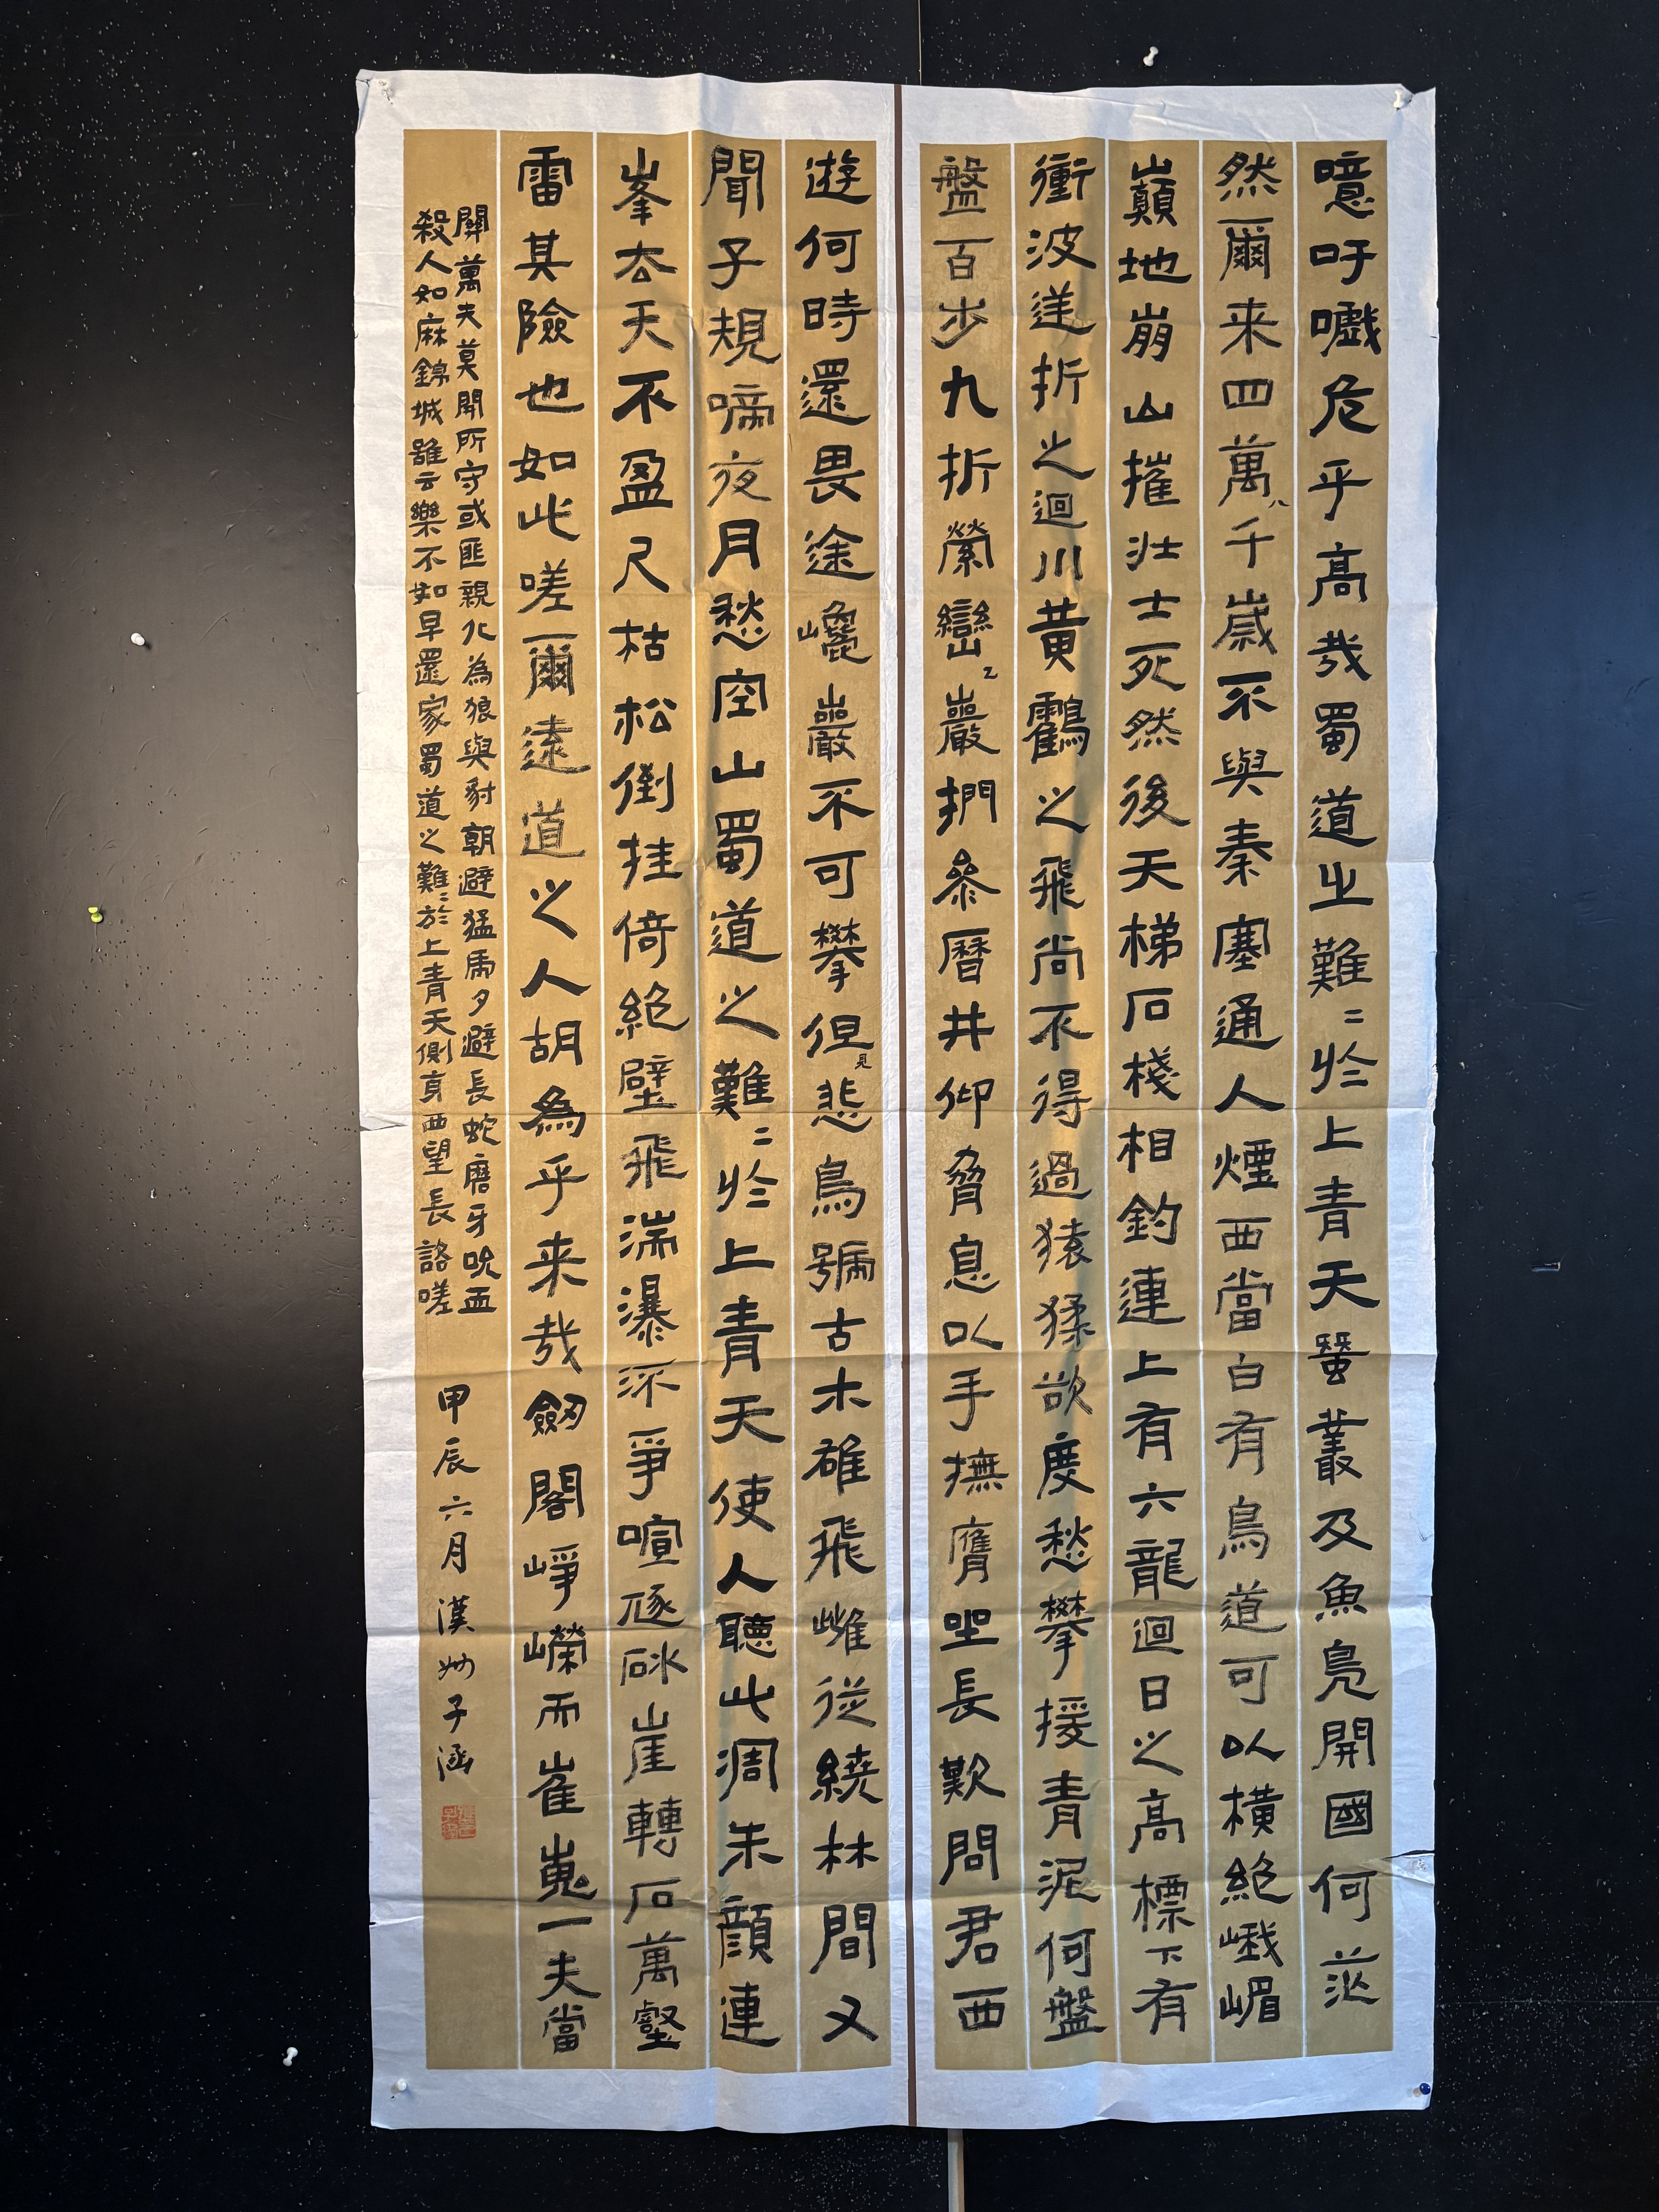 噫吁嚱危乎高哉蜀道之難〻於上青天蠶叢及魚鳧開國何茫
然爾来四萬八千歲不與秦塞通人煙西當白有鳥道可以橫絕峨嵋
巔地崩山摧壯士死然後天梯石棧相鈎連上有六龍迴日之高標下有
衝波逆折之迴川黃鶴之飛尚不得過猿猱欲度愁攀援青泥何盤
盤百步九折縈巒〻巖捫參曆井仰脅息以手撫膺坐長歎問君西
遊何時還畏途巉巖不可攀但見悲鳥號古木雄飛雌從繞林間又
聞子規啼夜月愁空山蜀道之難〻於上青天使人聽此凋朱顏連
峯去天不盈尺枯松倒挂倚絕壁飛湍瀑流爭喧豗砯崖轉石萬壑
雷其險也如此嗟爾遠道之人胡為乎来哉劒閣崢嶸而崔嵬一夫當
關萬夫莫開所守或匪親化為狼與豺朝避猛虎夕避長蛇磨牙吮血
殺人如麻錦城雖云樂不如早還家蜀道之難〻於上青天側身西望長諮嗟
甲辰六月漢州子涵